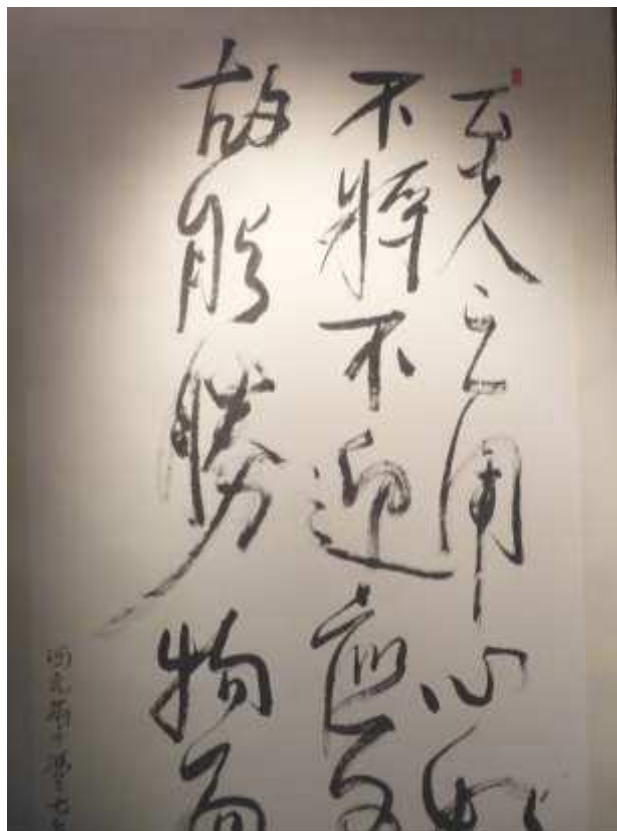 至人之用心
不将不迎應
故能勝物而